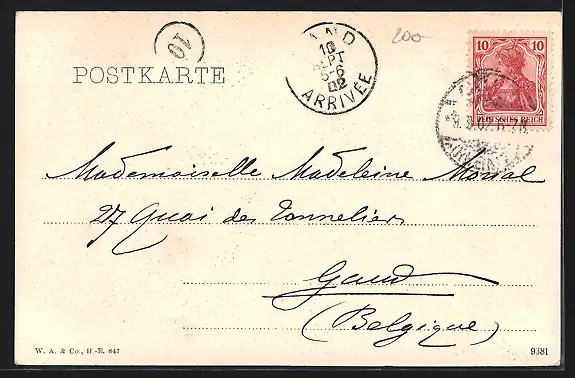 10
POSTKARTE
AND
10
SEPT
5-6
02
ARRIVÉE
200
10 10
DEUTSCHES REICH
Mademoiselle Madeleine
27 Quai des Tonneliers
Gand
(Belgique)
W. A. & Co., H.-R. 647
9381